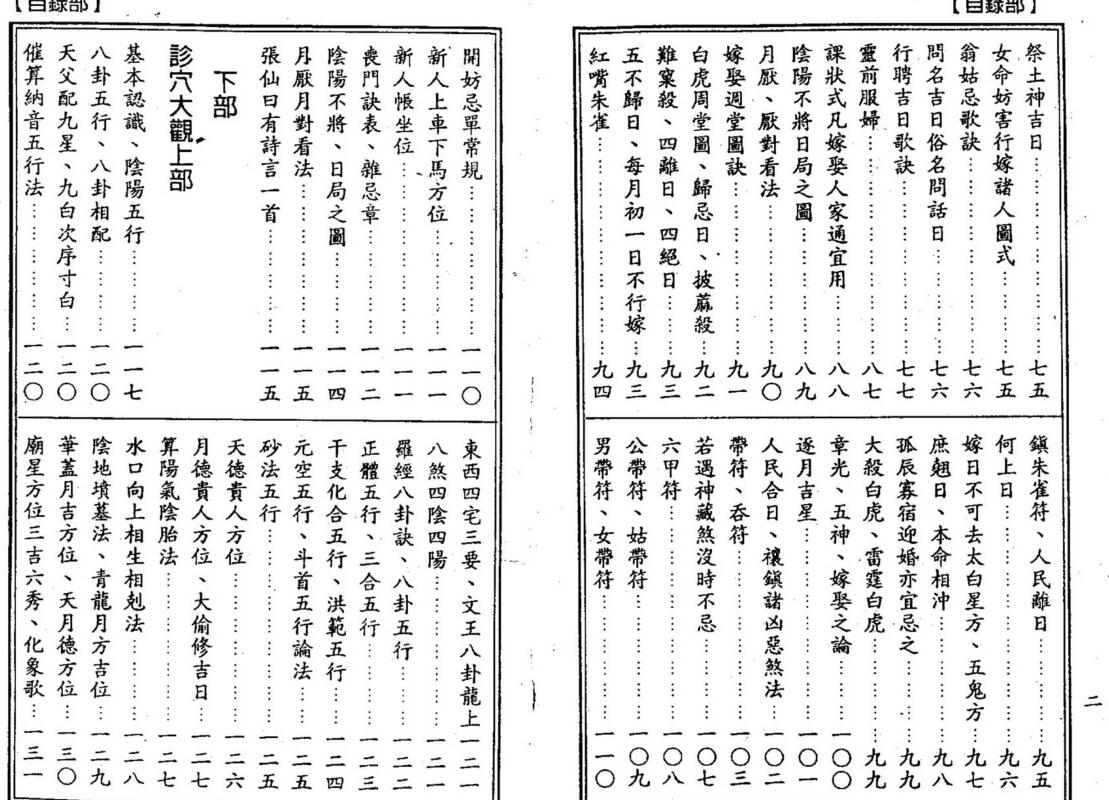 【目錄部】
祭土神吉日……七五
女命妨害行嫁諸人圖式……七五
翁姑忌歌訣……七六
問名吉日俗名問話日……七六
行聘吉日歌訣……七七
靈前服婦……八七
課狀式凡嫁娶人家通宜用……八八
陰陽不將日局之圖……八九
月厭、厭對看法……九〇
嫁娶週堂圖訣……九一
白虎周堂圖、歸忌日、披蔴殺……九二
難窠殺、四離日、四絕日……九三
五不歸日、每月初一日不行嫁……九三
紅嘴朱雀……九四
鎮朱雀符、人民離日……九五
何上日……九六
嫁日不可去太白星方、五鬼方……九七
庶翹日、本命相沖……九八
孤辰寡宿迎婚亦宜忌之……九九
大殺白虎、雷霆白虎……九九
章光、五神、嫁娶之論……一〇〇
逐月吉星……一〇一
人民合日、禳鎮諸凶惡煞法……一〇二
帶符、吞符……一〇三
若遇神藏煞沒時不忌……一〇七
六甲符……一〇八
公帶符、姑帶符……一〇九
男帶符、女帶符……一一〇
二
【目錄部】
開妨忌單常規……一一〇
新人上車下馬方位……一一一
新人帳坐位……一一一
喪門訣表、雜忌章……一一二
陰陽不將、日局之圖……一一四
月厭月對看法……一一五
張仙曰有詩言一首……一一五
下部
診穴大觀上部
基本認識、陰陽五行……一一七
八卦五行、八卦相配……一二〇
天父配九星、九白次序寸白……一二〇
催算納音五行法……一二〇
東西四宅三要、文王八卦龍上一二一
八煞四陰四陽……一二一
羅經八卦訣、八卦五行……一二二
正體五行、三合五行……一二三
干支化合五行、洪範五行……一二四
元空五行、斗首五行論法……一二五
砂法五行……一二五
天德貴人方位……一二六
月德貴人方位、大偷修吉日……一二七
算陽氣陰胎法……一二七
水口向上相生相剋法……一二八
陰地墳墓法、青龍月方吉位……一二九
華蓋月吉方位、天月德方位……一三〇
廟星方位三吉六秀、化象歌……一三一